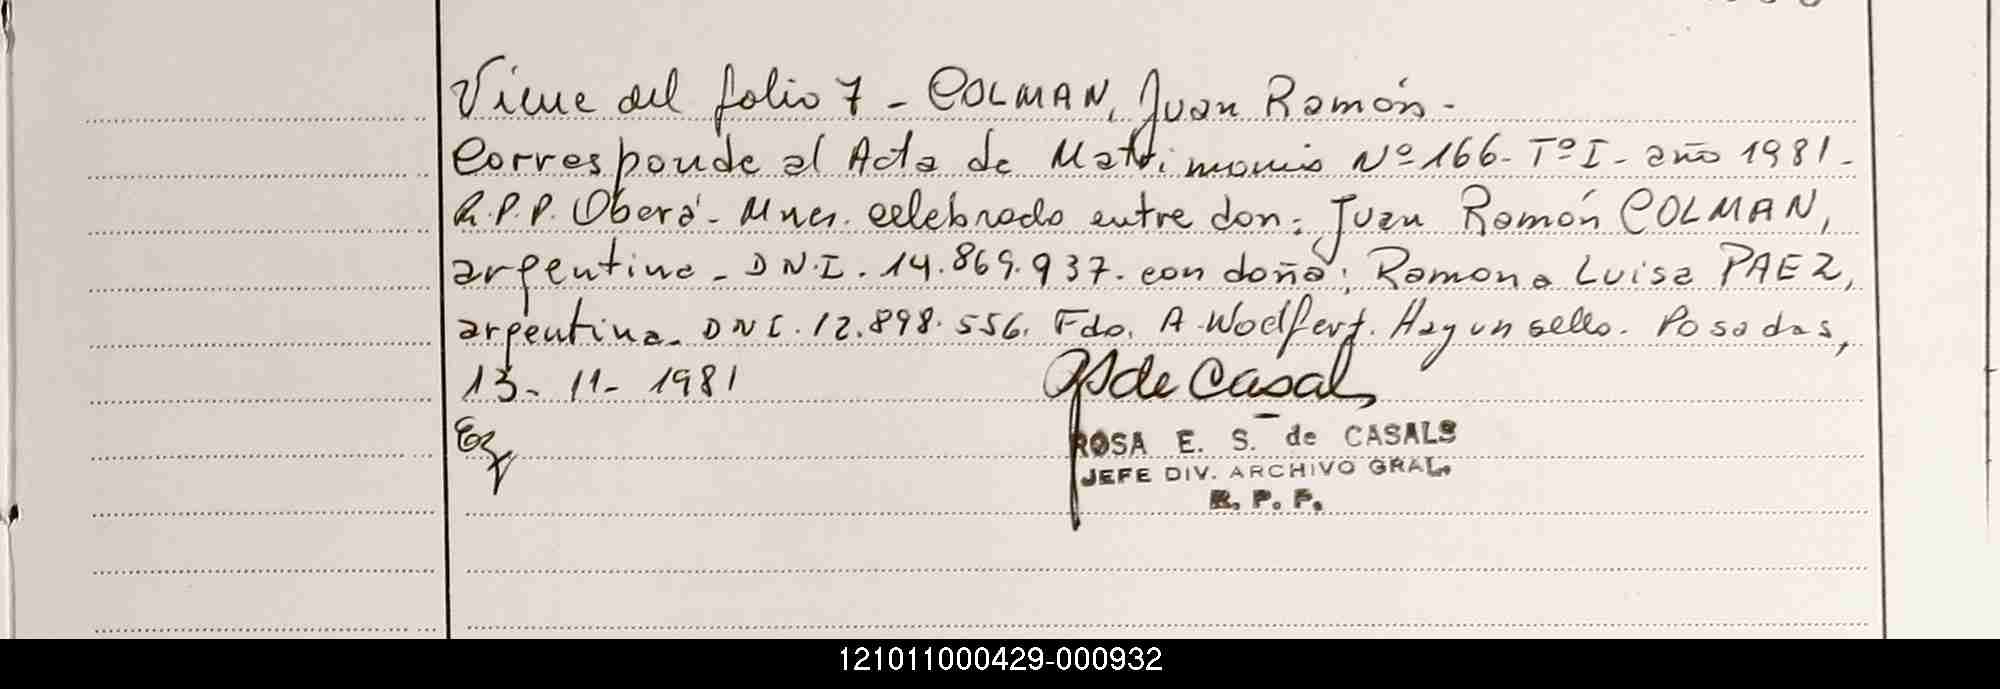 Viene del folio 7 - COLMAN, Juan Ramón -
Corresponde al Acta de Matrimonio Nº 166 - Tº I - año 1981 -
R.P.P. Oberá - Mnes. celebrado entre don: Juan Ramón COLMAN,
argentino - DN.I. 14.869.937. con doña: Ramona Luisa PAEZ,
argentina - DNI. 12.898.556. Fdo. A. Wodfert. Hay un sello. Posadas,
13 - 11 - 1981
de Casals
ROSA E. S. de CASALS
JEFE DIV. ARCHIVO GRAL.
R. P. P.
121011000429-000932